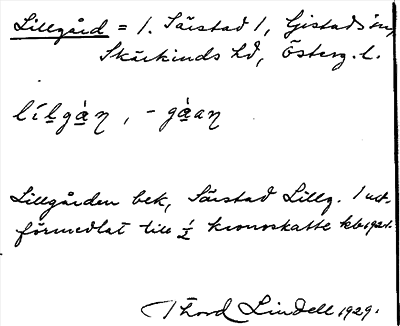 Lillgård = 1. Särstad 1, Gistads sn,
Skärkinds hd, Österg. l.
lílgàn, -gàan
Lillgården bek, Särstad Lillg. 1 ut-
förmedlat till ½ kronoskatte kb 1921.
Thord Lindell 1929.